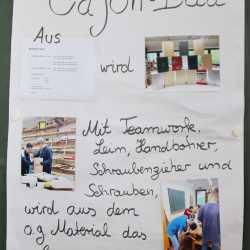 Cajon-Bau
Aus
wird
Mit Teamwork,
Leim, Handbohrer,
Schraubenzieher und
Schrauben,
wird aus dem
o.g. Material das